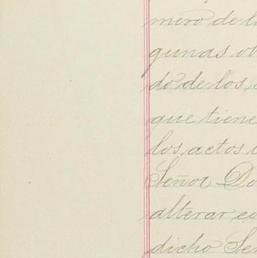 mero de l
gunas ot
do de los
que tiene
los actos
Señor Do
alterar, co
dicho Se